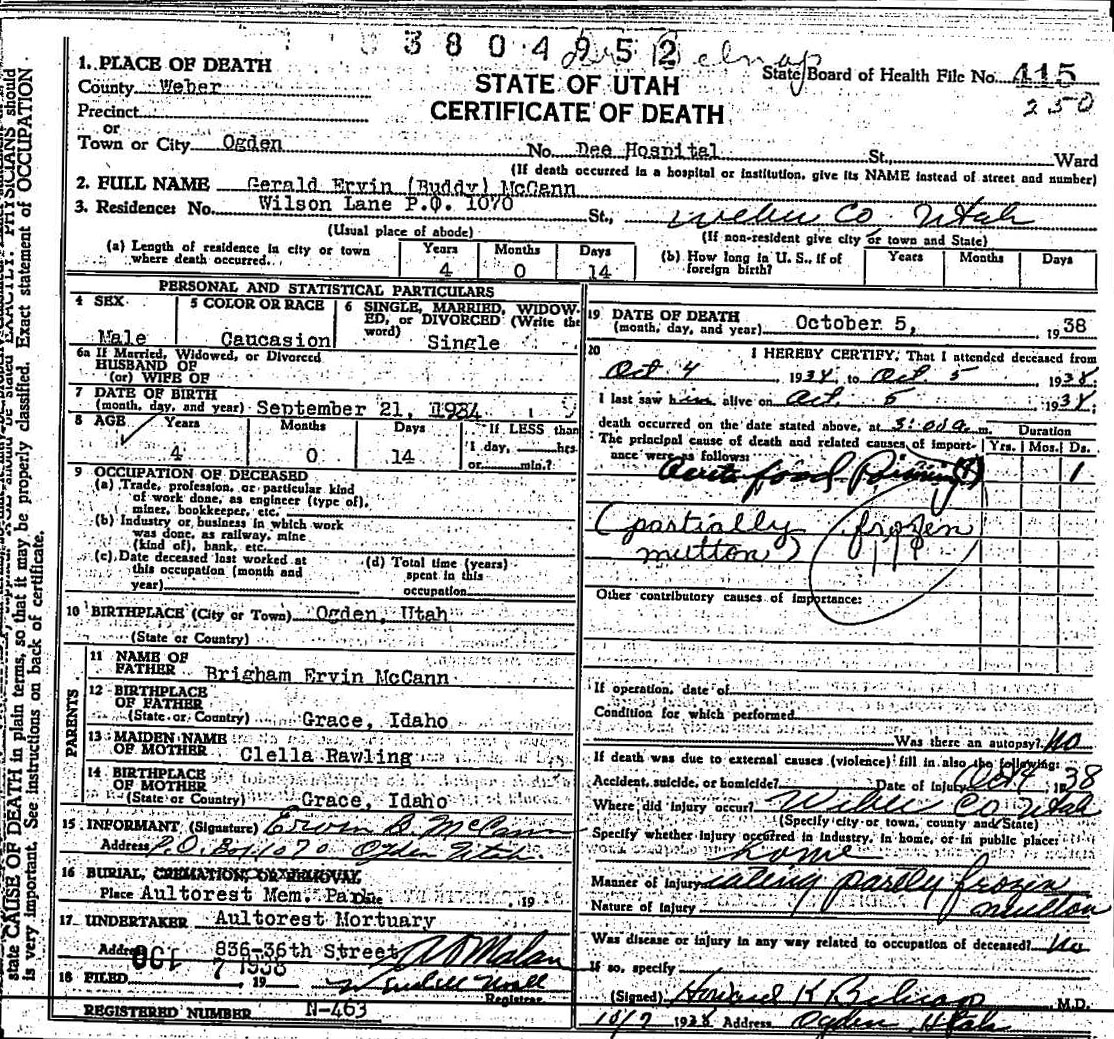 3804952 Belnap
1. PLACE OF DEATH
County Weber
STATE OF UTAH
CERTIFICATE OF DEATH
State Board of Health File No. 415
250
Precinct
or
Town or City Ogden No. Dee Hospital St., Ward
(If death occurred in a hospital or institution, give its NAME instead of street and number)
2. FULL NAME Gerald Ervin (Buddy) McCann
3. Residence: No. Wilson Lane P.O. 1070 St., Weber Co. Utah
(Usual place of abode) (If non-resident give city or town and State)
(a) Length of residence in city or town where death occurred. Years 4 Months 0 Days 14
(b) How long in U. S., if of foreign birth? Years Months Days
PERSONAL AND STATISTICAL PARTICULARS
4 SEX Male
5 COLOR OR RACE Caucasion
6 SINGLE, MARRIED, WIDOWED, or DIVORCED (Write the word) Single
6a If Married, Widowed, or Divorced
HUSBAND OF
(or) WIFE OF
7 DATE OF BIRTH
(month, day, and year) September 21, 1934
8 AGE Years 4 Months 0 Days 14
If LESS than
1 day, hrs.
or min.?
9 OCCUPATION OF DECEASED
(a) Trade, profession, or particular kind
of work done, as engineer (type of),
miner, bookkeeper, etc.
(b) Industry or business in which work
was done, as railway, mine
(kind of), bank, etc.
(c) Date deceased last worked at
this occupation (month and
year)
(d) Total time (years)
spent in this
occupation
10 BIRTHPLACE (City or Town) Ogden, Utah
(State or Country)
PARENTS
11 NAME OF
FATHER Brigham Ervin McCann
12 BIRTHPLACE
OF FATHER
(State or Country) Grace, Idaho
13 MAIDEN NAME
OF MOTHER Clella Rawling
14 BIRTHPLACE
OF MOTHER
(State or Country) Grace, Idaho
15 INFORMANT (Signature) Ervin B. McCann
Address P.O. Box 1070 Ogden Utah.
16 BURIAL, CREMATION, OR REMOVAL
Place Aultorest Mem. Pa Date , 19
17 UNDERTAKER Aultorest Mortuary
Address 836-36th Street
OCT 7 1938
18 FILED , 19
Registrar
REGISTERED NUMBER N-463
19 DATE OF DEATH
(month, day, and year) October 5, 1938
20 I HEREBY CERTIFY, That I attended deceased from
Oct 4, 1938, to Oct. 5 1938;
I last saw him alive on Oct. 5 1938;
death occurred on the date stated above, at 3:00 a m.
The principal cause of death and related causes of importance were as follows:
Duration
Yrs. Mos. Ds.
Acute food Poisoning (?) 1
(partially frozen
mutton)
Other contributory causes of importance:
If operation, date of
Condition for which performed
Was there an autopsy? No
If death was due to external causes (violence) fill in also the following:
Accident, suicide, or homicide? Date of injury Oct 4, 1938
Where did injury occur? Weber Co Utah
(Specify city or town, county and State)
Specify whether injury occurred in industry, in home, or in public place:
home
Manner of injury eating partly frozen
Nature of injury mutton
Was disease or injury in any way related to occupation of deceased? No
If so, specify
(Signed) Howard K Belnap M.D.
10/7 1938 Address Ogden, Utah
state CAUSE OF DEATH in plain terms, so that it may be properly classified. Exact statement of OCCUPATION
is very important. See instructions on back of certificate.